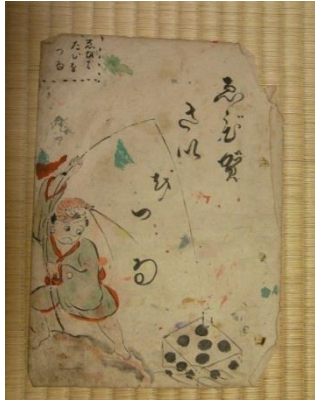 ゑび賀
さい
をつる
ゑびで
たいを
つる